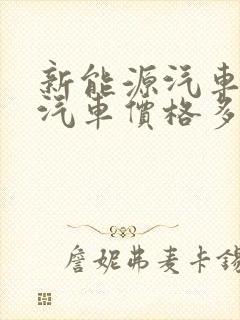 新能源汽車
汽車價格多
詹妮弗麦卡錫